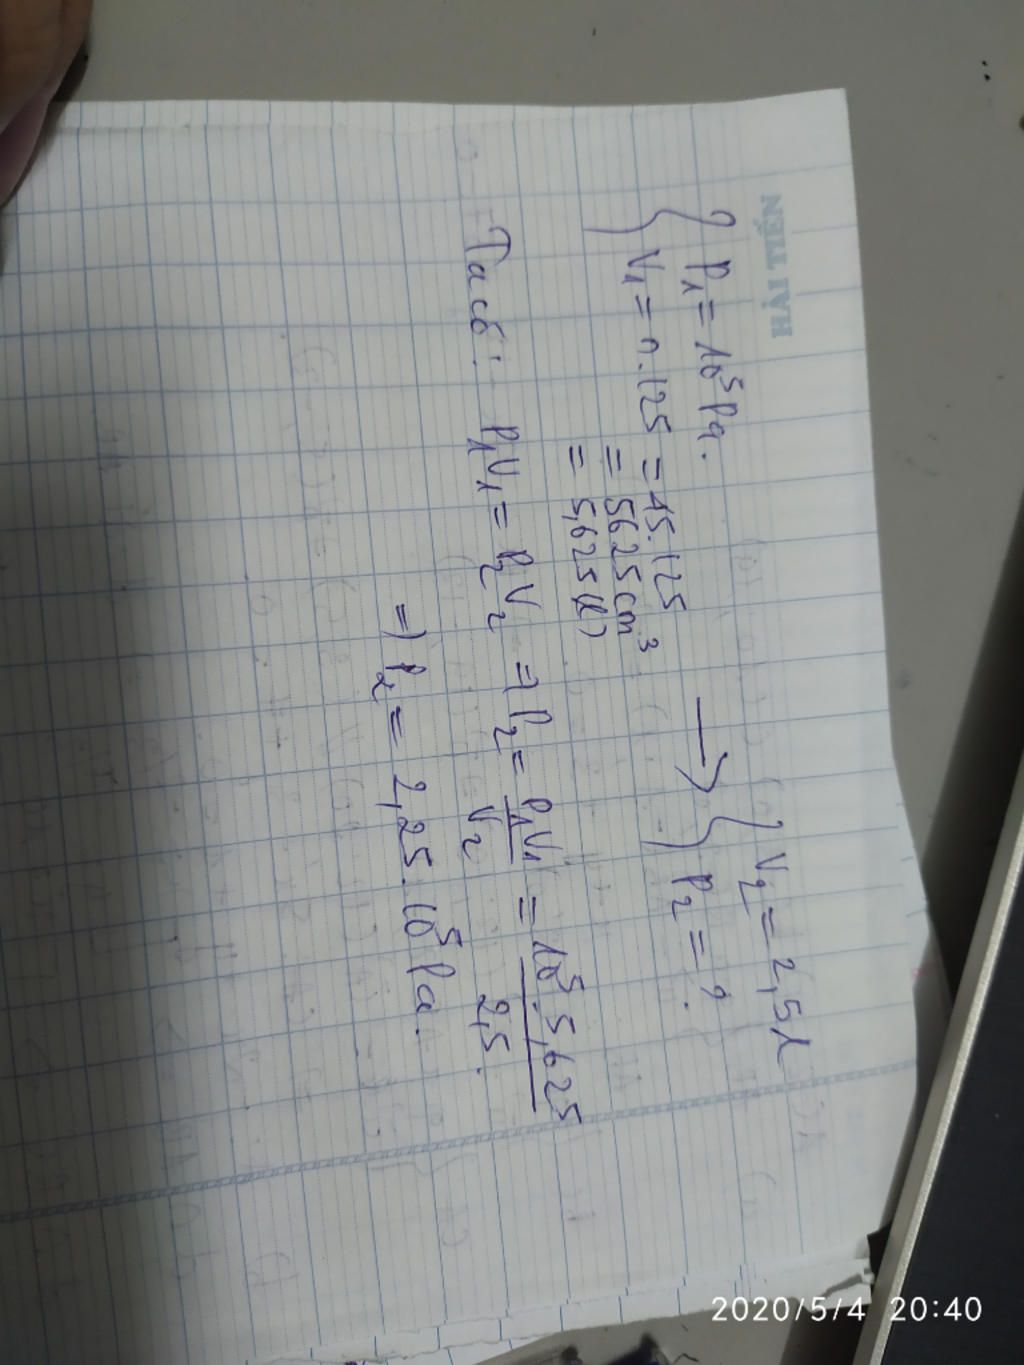 HẢI TIẾN
P₁ = 10⁵ Pa.
V₁ = n.125 = 45.125
= 5625 cm³
= 5,625 (l)
→
V₂ = 2,5 l
P₂ = ?
Ta có: P₁V₁ = P₂V₂ => P₂ = P₁V₁ / V₂ = 10⁵.5,625 / 2,5.
=> P₂ = 2,25.10⁵ Pa.
2020/5/4 20:40